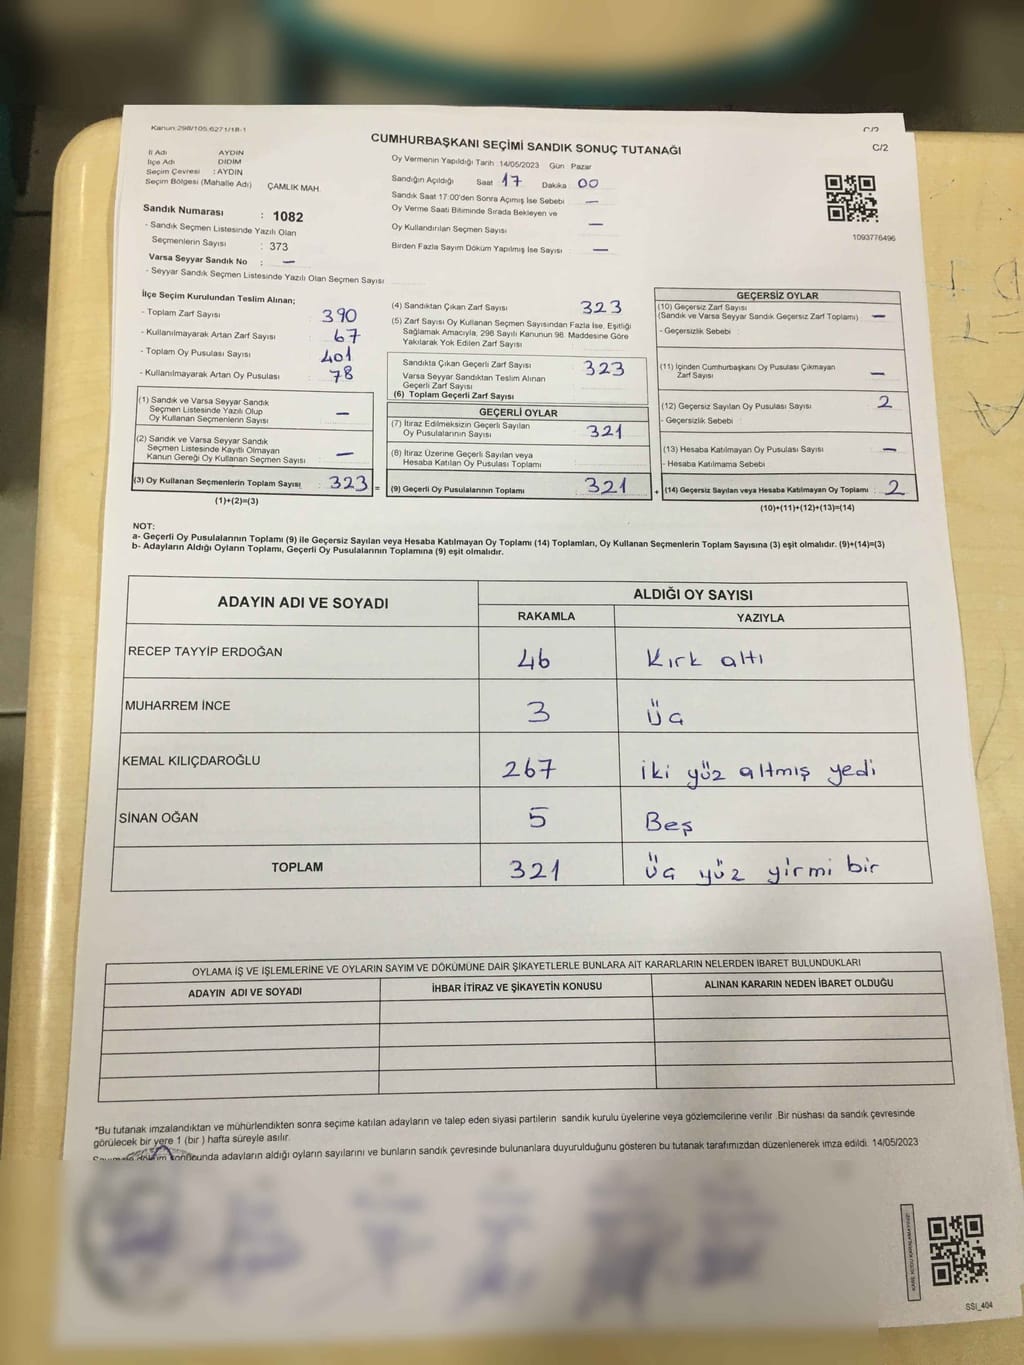 Kanun:298/105,6271/18-1
CUMHURBAŞKANI SEÇİMİ SANDIK SONUÇ TUTANAĞI
C/2
C/2
İl Adı AYDIN
İlçe Adı DİDİM
Seçim Çevresi : AYDIN
Seçim Bölgesi (Mahalle Adı) ÇAMLIK MAH.
Sandık Numarası : 1082
- Sandık Seçmen Listesinde Yazılı Olan
Seçmenlerin Sayısı : 373
Varsa Seyyar Sandık No : —
- Seyyar Sandık Seçmen Listesinde Yazılı Olan Seçmen Sayısı
Oy Vermenin Yapıldığı Tarih 14/05/2023 Gün Pazar
Sandığın Açıldığı Saat 17 Dakika 00
Sandık Saat 17:00'den Sonra Açımış İse Sebebi —
Oy Verme Saati Bitiminde Sırada Bekleyen ve
Oy Kullandırılan Seçmen Sayısı —
Birden Fazla Sayım Döküm Yapılmış İse Sayısı —
1093776496
İlçe Seçim Kurulundan Teslim Alınan;
- Toplam Zarf Sayısı : 390
- Kullanılmayarak Artan Zarf Sayısı : 67
- Toplam Oy Pusulası Sayısı : 401
- Kullanılmayarak Artan Oy Pusulası : 78
(1) Sandık ve Varsa Seyyar Sandık
Seçmen Listesinde Yazılı Olup
Oy Kullanan Seçmenlerin Sayısı : —
(2) Sandık ve Varsa Seyyar Sandık
Seçmen Listesinde Kayıtlı Olmayan
Kanun Gereği Oy Kullanan Seçmen Sayısı : —
(3) Oy Kullanan Seçmenlerin Toplam Sayısı : 323 =
(1)+(2)=(3)
(4) Sandıktan Çıkan Zarf Sayısı 323
(5) Zarf Sayısı Oy Kullanan Seçmen Sayısından Fazla İse, Eşitliği
Sağlamak Amacıyla, 298 Sayılı Kanunun 98. Maddesine Göre
Yakılarak Yok Edilen Zarf Sayısı
Sandıkta Çıkan Geçerli Zarf Sayısı 323
Varsa Seyyar Sandıktan Teslim Alınan
Geçerli Zarf Sayısı
(6) Toplam Geçerli Zarf Sayısı
GEÇERLİ OYLAR
(7) İtiraz Edilmeksizin Geçerli Sayılan
Oy Pusulalarının Sayısı : 321
(8) İtiraz Üzerine Geçerli Sayılan veya
Hesaba Katılan Oy Pusulası Toplamı
(9) Geçerli Oy Pusulalarının Toplamı : 321 +
GEÇERSİZ OYLAR
(10) Geçersiz Zarf Sayısı
(Sandık ve Varsa Seyyar Sandık Geçersiz Zarf Toplamı) : —
- Geçersizlik Sebebi :
(11) İçinden Cumhurbaşkanı Oy Pusulası Çıkmayan
Zarf Sayısı —
(12) Geçersiz Sayılan Oy Pusulası Sayısı : 2
- Geçersizlik Sebebi :
(13) Hesaba Katılmayan Oy Pusulası Sayısı : —
- Hesaba Katılmama Sebebi
(14) Geçersiz Sayılan veya Hesaba Katılmayan Oy Toplamı : 2
(10)+(11)+(12)+(13)=(14)
NOT:
a- Geçerli Oy Pusulalarının Toplamı (9) ile Geçersiz Sayılan veya Hesaba Katılmayan Oy Toplamı (14) Toplamları, Oy Kullanan Seçmenlerin Toplam Sayısına (3) eşit olmalıdır. (9)+(14)=(3)
b- Adayların Aldığı Oyların Toplamı, Geçerli Oy Pusulalarının Toplamına (9) eşit olmalıdır.
ADAYIN ADI VE SOYADI ALDIĞI OY SAYISI
RAKAMLA YAZIYLA
RECEP TAYYİP ERDOĞAN 46 Kırk altı
MUHARREM İNCE 3 Üç
KEMAL KILIÇDAROĞLU 267 iki yüz altmış yedi
SİNAN OĞAN 5 Beş
TOPLAM 321 üç yüz yirmi bir
OYLAMA İŞ VE İŞLEMLERİNE VE OYLARIN SAYIM VE DÖKÜMÜNE DAİR ŞİKAYETLERLE BUNLARA AİT KARARLARIN NELERDEN İBARET BULUNDUKLARI
ADAYIN ADI VE SOYADI İHBAR İTİRAZ VE ŞİKAYETİN KONUSU ALINAN KARARIN NEDEN İBARET OLDUĞU
*Bu tutanak imzalandıktan ve mühürlendikten sonra seçime katılan adayların ve talep eden siyasi partilerin sandık kurulu üyelerine veya gözlemcilerine verilir .Bir nüshası da sandık çevresinde
görülecek bir yere 1 (bir ) hafta süreyle asılır.
Sayım ve döküm sonucunda adayların aldığı oyların sayılarını ve bunların sandık çevresinde bulunanlara duyurulduğunu gösteren bu tutanak tarafımızdan düzenlenerek imza edildi. 14/05/2023
KARE KODU KARALAMAYINIZ!
SSİ_404